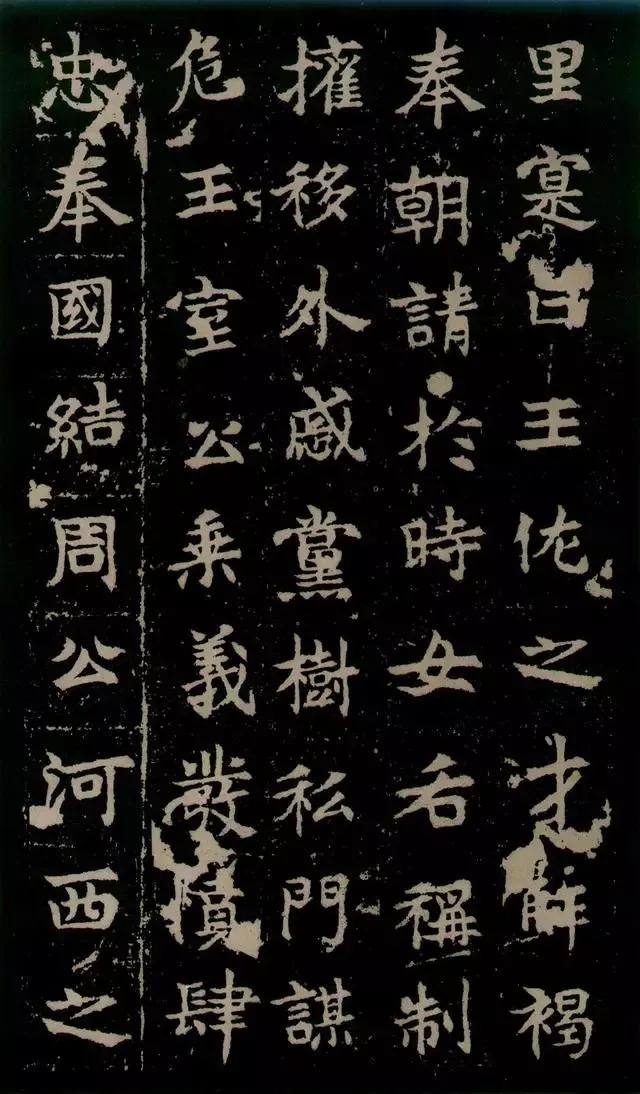 里寔曰王佐之才解褐
奉朝請於時女后稱制
權移外戚黨樹私門謀
危王室公秉義發憤肆
忠奉國結周公河西之